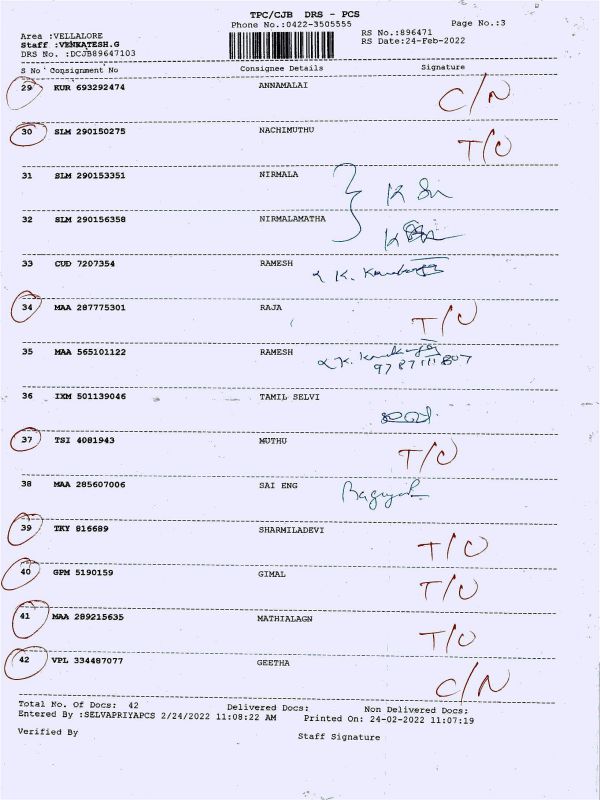 TPC/CJB DRS - PCS
Phone No.:0422-3505555
Page No.:3
Area :VELLALORE
RS No.:896471
Staff :VENKATESH.G
RS Date:24-Feb-2022
DRS No. :DCJB89647103
S No Consignment No Consignee Details Signature
29 KUR 693292474 ANNAMALAI C/N
30 SLM 290150275 NACHIMUTHU T/O
31 SLM 290153351 NIRMALA
32 SLM 290156358 NIRMALAMATHA
33 CUD 7207354 RAMESH
34 MAA 287775301 RAJA T/O
35 MAA 565101122 RAMESH
36 IXM 501139046 TAMIL SELVI
37 TSI 4081943 MUTHU T/O
38 MAA 285607006 SAI ENG
39 TKY 816689 SHARMILADEVI T/O
40 GPM 5190159 GIMAL T/O
41 MAA 289215635 MATHIALAGN T/O
42 VPL 334487077 GEETHA C/N
Total No. Of Docs: 42 Delivered Docs: Non Delivered Docs:
Entered By :SELVAPRIYAPCS 2/24/2022 11:08:22 AM Printed On: 24-02-2022 11:07:19
Verified By Staff Signature